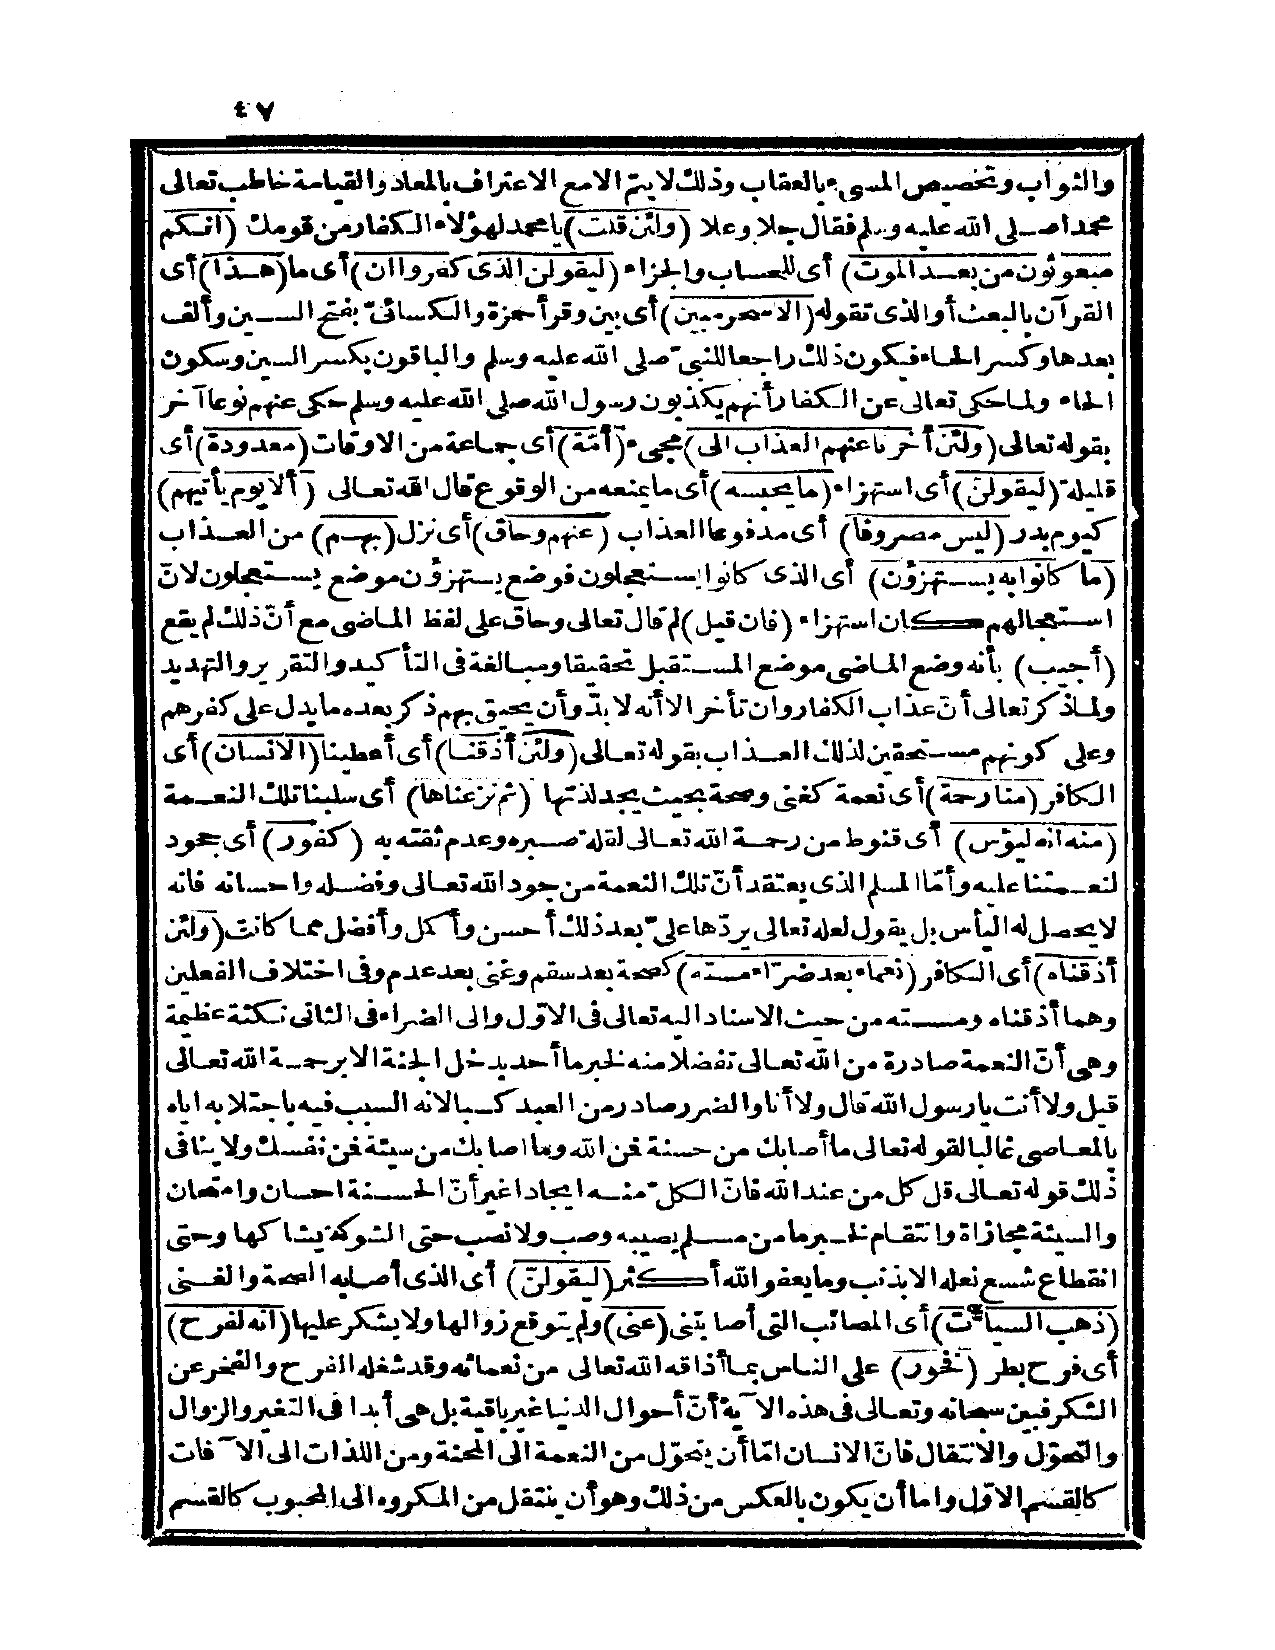 ٤٧
والثواب وتخصيص المسىء بالعقاب وذلك لا يتم الا مع الاعتراف بالمعاد والقيامة خاطب تعالى
محمدا صلى الله عليه وسلم فقال جلا وعلا (ولئن قلت) يا محمد لهؤلاء الكفار من قومك (انكم
مبعوثون من بعد الموت) أى للحساب والجزاء (ليقولن الذى كفروا ان) أى ما (هذا) أى
القرآن بالبعث أو الذى تقوله (الا سحر مبين) أى بين وقرأ حمزة والكسائىّ بفتح السين وألف
بعدها وكسر الحاء فيكون ذلك راجعا للنبىّ صلى الله عليه وسلم والباقون بكسر السين وسكون
الحاء ولما حكى تعالى عن الكفار أنهم يكذبون رسول الله صلى الله عليه وسلم حكى عنهم نوعا آخر
بقوله تعالى (ولئن أخرنا عنهم العذاب الى) مجىء (أمّة) أى جماعة من الاوقات (معدودة) أى
قليلة (ليقولنّ) أى استهزاء (ما يحبسه) أى ما يمنعه من الوقوع قال الله تعالى (ألا يوم يأتيهم)
كيوم بدر (ليس مصروفا) أى مدفوعا العذاب (عنهم وحاق) أى نزل (بهم) من العذاب
(ما كانوا به يستهزؤن) أى الذى كانوا يستعجلون فوضع يستهزؤن موضع يستعجلون لانّ
استعجالهم كان استهزاء (فان قيل) لم قال تعالى وحاق على لفظ الماضى مع أنّ ذلك لم يقع
(أجيب) بأنه وضع الماضى موضع المستقبل تحقيقا ومبالغة فى التأكيد والتقرير والتهديد
ولما ذكر تعالى أنّ عذاب الكفار وان تأخر الا أنه لا بدّ وأن يحيق بهم ذكر بعده ما يدل على كفرهم
وعلى كونهم مستحقين لذلك العذاب بقوله تعالى (ولئن أذقنا) أى أعطينا (الانسان) أى
الكافر (منا رحمة) أى نعمة كغنى وصحة بحيث يجد لذتها (ثم نزعناها) أى سلبنا تلك النعمة
(منه انه ليؤس) أى قنوط من رحمة الله تعالى لقلة صبره وعدم ثقته به (كفور) أى جحود
لنعمتنا عليه وأمّا المسلم الذى يعتقد أنّ تلك النعمة من جود الله تعالى وفضله واحسانه فانه
لا يحصل له اليأس بل يقول لعله تعالى يردّها علىّ بعد ذلك أحسن وأكمل وأفضل مما كانت (ولئن
أذقناه) أى الكافر (نعماء بعد ضرّاء مسته) كصحة بعد سقم وغنى بعد عدم وفى اختلاف الفعلين
وهما أذقناه ومسته من حيث الاسناد اليه تعالى فى الاوّل والى الضراء فى الثانى نكتة عظيمة
وهى أنّ النعمة صادرة من الله تعالى تفضلا منه لخبر ما أحد يدخل الجنة الا برحمة الله تعالى
قيل ولا أنت يا رسول الله قال ولا أنا والضر رصادر من العبد كسبا لانه السبب فيه باجتلابه اياه
بالمعاصى غالبا لقوله تعالى ما أصابك من حسنة فمن الله وما اصابك من سيئة فمن نفسك ولا ينافى
ذلك قوله تعالى قل كل من عند الله فانّ الكلّ منه ايجادا غير أنّ الحسنة احسان وامتحان
والسيئة مجازاة وانتقام لخبر ما من مسلم يصيبه وصب ولا نصب حتى الشوكة يشاكها وحتى
انقطاع شسع نعله الا بذنب وما يعفو الله أكثر (ليقولنّ) أى الذى أصابه الصحة والغنى
(ذهب السيات) أى المصائب التى أصابتنى (عنى) ولم يتوقع زوالها ولا يشكر عليها (انه لفرح)
أى فرح بطر (فخور) على الناس بما أذاقه الله تعالى من نعمائه وقد شغله الفرح والفخر عن
الشكر فبين سبحانه وتعالى فى هذه الآية أنّ أحوال الدنيا غير باقية بل هى أبدا فى التغير والزوال
والتحوّل والانتقال فانّ الانسان امّا أن يتحوّل من النعمة الى المحنة ومن اللذات الى الآفات
كالقسم الاوّل واما أن يكون بالعكس من ذلك وهو أن ينتقل من المكروه الى المحبوب كالقسم